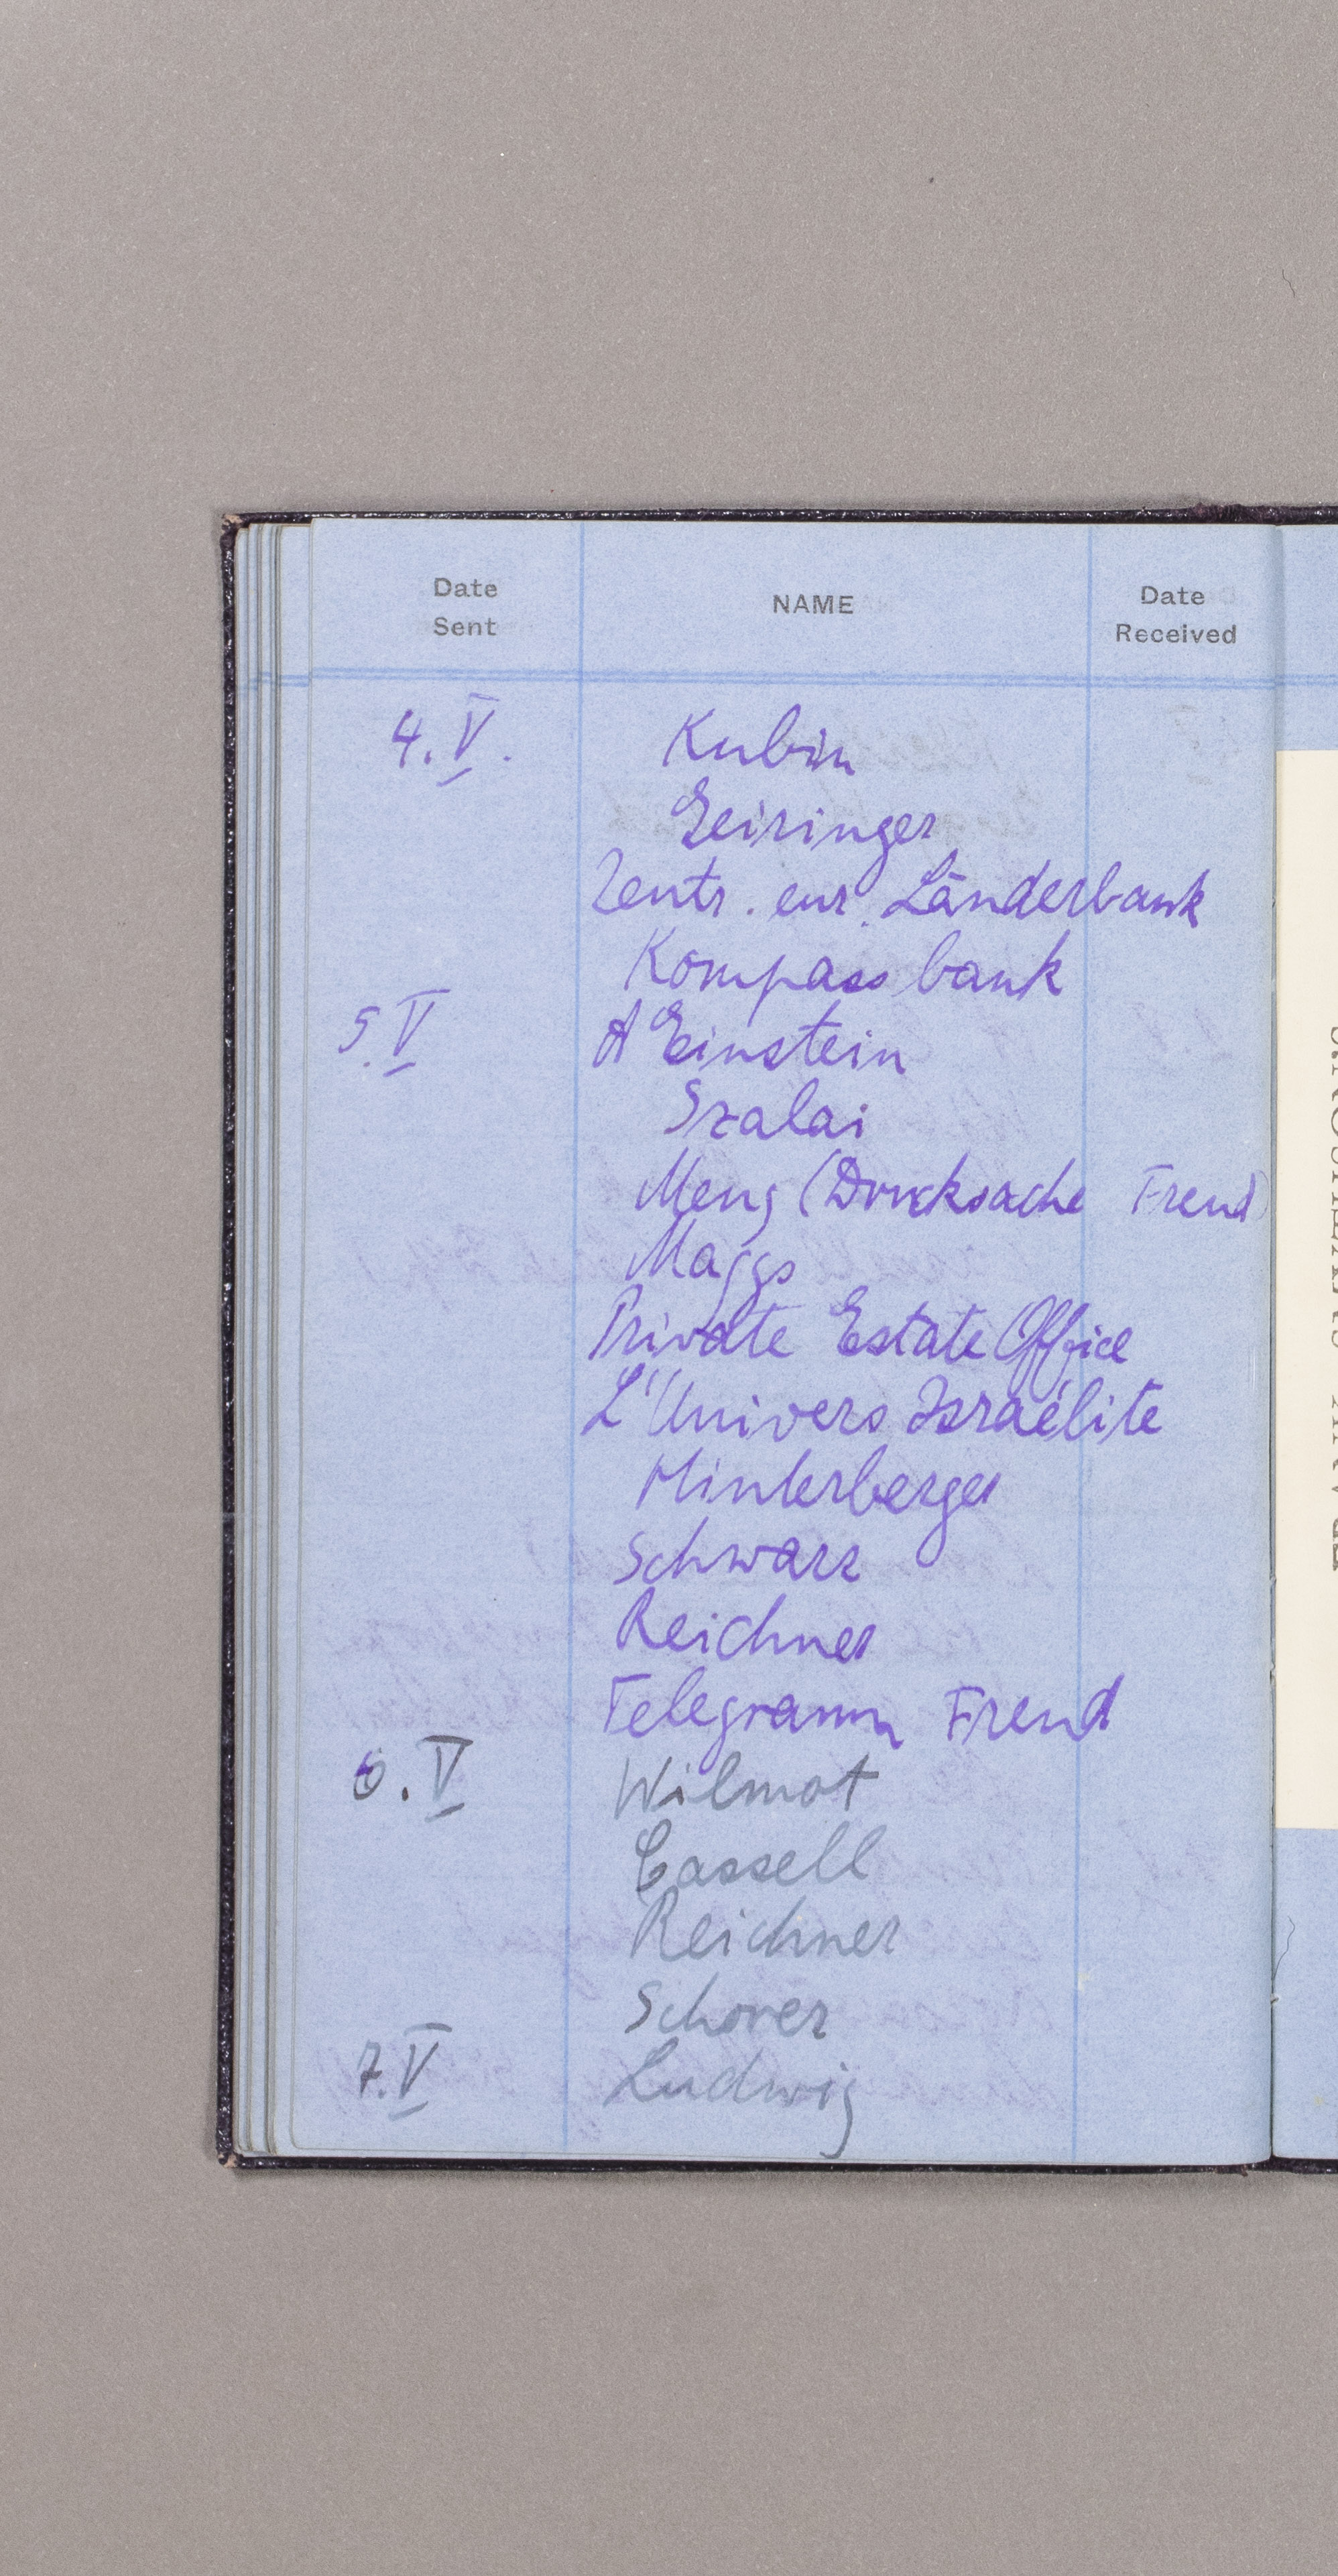 Date Sent NAME Date Received
4. V. Kubin
Geiringer
Zentr. eur. Länderbank
Kompass bank
5. V A Einstein
Szalai
Meng (Drucksache Freud)
Maggs
Private Estate Office
L'Univers Israélite
Hinterberger
Schwarz
Reichner
Telegramm Freud
6. V Wilmot
Cassell
Reichner
7. V Ludwig